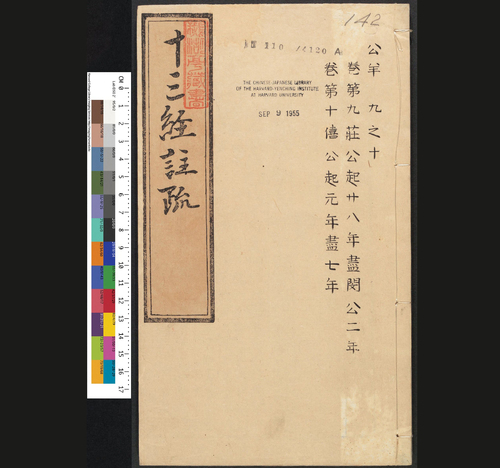 142
公羊 九之十
卷第九莊公起廿八年盡閔公二年
卷第十僖公起元年盡七年
THE CHINESE-JAPANESE LIBRARY
OF THE HARVARD-YENCHING INSTITUTE
AT HARVARD UNIVERSITY
SEP 9 1955
十三經註疏
CM 0 1 2 3 4 5 6 7 8 9 10 11 12 13 14 15 16 17